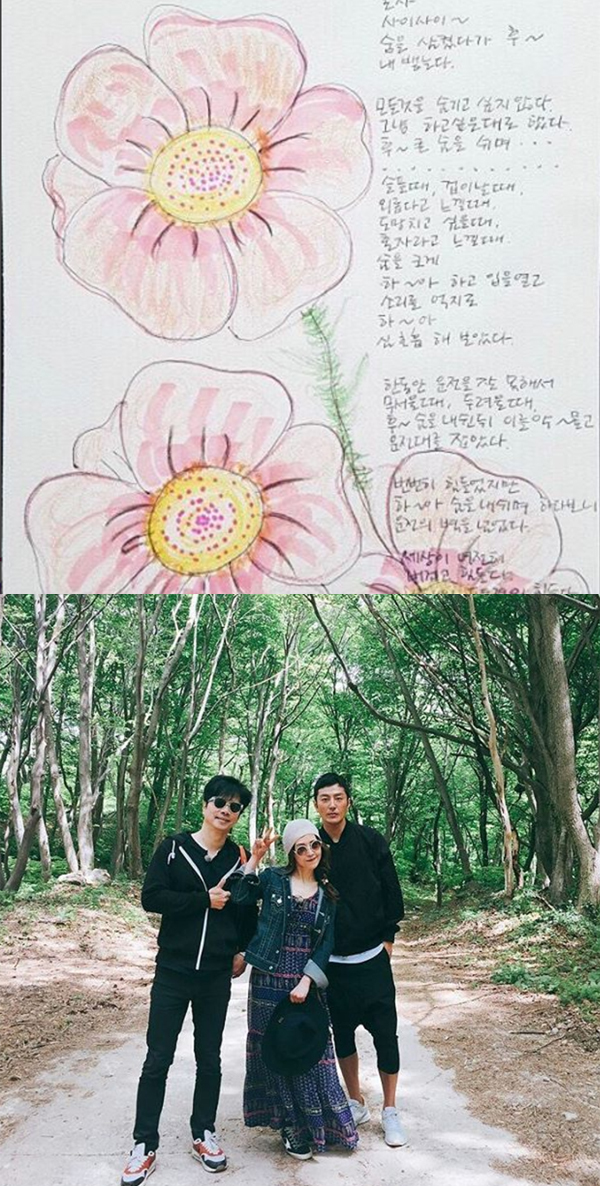 사이사이~
숨을 삼켰다가 후~
내 뱉는다.
모든것을 숨기고 싶지 않았다.
그냥 하고싶은대로 했다.
후~큰 숨을 쉬며...
슬플때, 겁이날때,
외롭다고 느낄때,
도망치고 싶을때,
혼자라고 느낄때.
숨을 크게
하~아 하고 입을열고
소리를 억지로
하~아
심호흡 해 보았다.
한동안 운전을 잘 못해서
무서울때, 두려울때,
후~ 숨을 내쉰뒤 이를 악~물고
운전대를 잡았다.
번번히 힘들었지만
하~아 숨을 내쉬며 하다보니
운전의 벽을 넘었다.
세상이
버겁고 힘들다